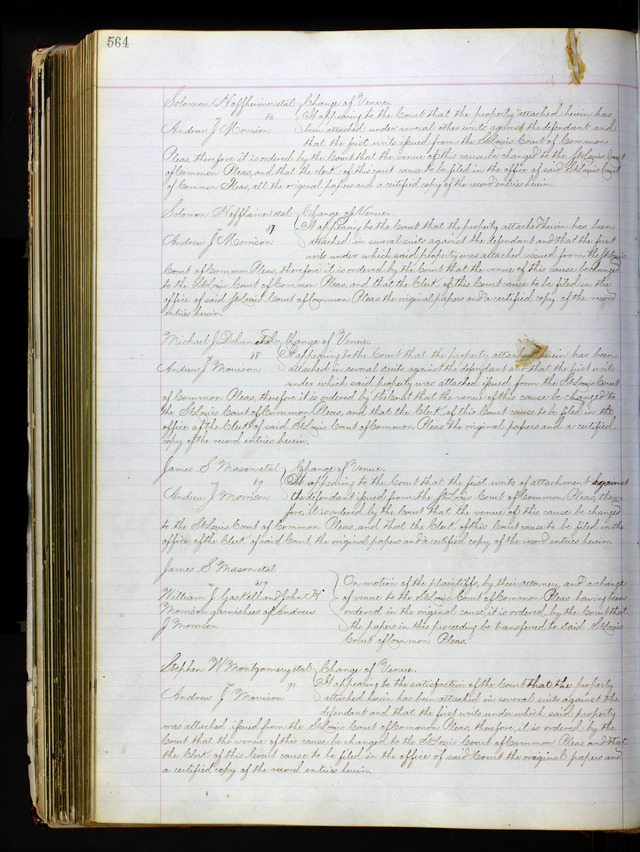 564
Solomon Hoffheimer et al } Change of Venue.
86 It appearing to the Court that the property attached herein has
Andrew J Morrison been attached under several other writs against the defendant and
that the first writ issued from the St Louis Court of Common
Pleas, therefore it is ordered by the Court that the venue of this cause be changed to the St Louis Court
of Common Pleas, and that the clerk of this court cause to be filed in the office of said St Louis Court
of Common Pleas, all the original papers and a certified copy of the record entries herein.
Solomon Hoffheimer et al } Change of Venue.
It appearing to the Court that the property attached herein has been
Andrew J Morrison attached in several suits against the defendant and that the first
writ under which said property was attached issued from the St Louis
Court of Common Pleas, therefore it is ordered by the Court that the venue of this cause be changed
to the St Louis Court of Common Pleas, and that the Clerk of this Court cause to be filed in the
office of said St Louis Court of Common Pleas the original papers and a certified copy of the record
entries herein.
Michael J. et al } Change of Venue.
88 It appearing to the Court that the property attached herein has been
Andrew J Morrison attached in several suits against the defendant and that the first writ
under which said property was attached issued from the St Louis Court
of Common Pleas, therefore it is ordered by the Court that the venue of this cause be changed to
the St Louis Court of Common Pleas, and that the Clerk of this Court cause to be filed in the
office of the Clerk of said St Louis Court of Common Pleas the original papers and a certified
copy of the record entries herein.
James S Mason et al } Change of Venue.
89 It appearing to the Court that the first writ of attachment against
Andrew J Morrison the defendant issued from the St Louis Court of Common Pleas, there
fore, it is ordered by the Court that the venue of this cause be changed
to the St Louis Court of Common Pleas, and that the Clerk of this Court cause to be filed in the
office of the Clerk of said Court, the original papers and a certified copy of the record entries herein.
James S Mason et al
On motion of the plaintiffs, by their attorney, and a change
William J. Gaskell and John H of venue to the St Louis Court of Common Pleas having been
Morrison garnishees of Andrew ordered in the original cause, it is ordered by the Court that
J Morrison the papers in this proceeding be transferred to said St Louis
Court of Common Pleas.
Stephen W Montgomery et al } Change of Venue.
It appearing to the satisfaction of the Court that the property
Andrew J Morrison attached herein has been attached in several suits against the
defendant and that the first writ under which said property
was attached issued from the St Louis Court of Common Pleas, therefore, it is ordered by the
Court that the venue of this cause be changed to the St Louis Court of Common Pleas and that
the Clerk of this Court cause to be filed in the office of said Court the original papers and
a certified copy of the record entries herein.